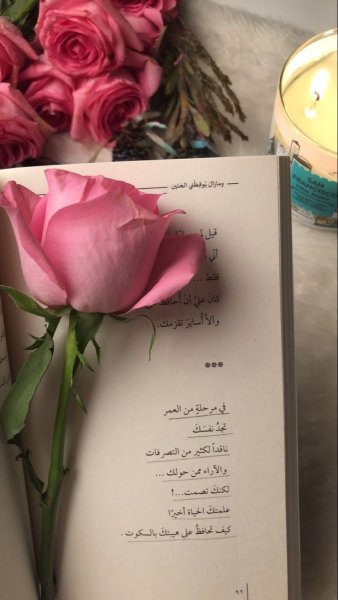 ومازال يوقظني الحنين
قيل
فقط ...
كان عليّ أن أحافظ
وألا أسايرَ تقزمك.
***
في مرحلةٍ من العمر
تجدُ نفسَكَ
ناقداً لكثير من التصرفات
والآراء ممن حولك ...
لكنكَ تصمت...!
علمتكَ الحياة أخيرًا
كيف تحافظُ على هيبتكَ بالسكوت .
٩٢
SAN
FRANCISCO